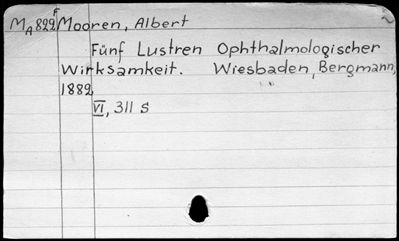 MA822F Mooren, Albert
Fünf Lustren Ophthalmologischer
Wirksamkeit. Wiesbaden, Bergmann,
1882.
VI, 311 S